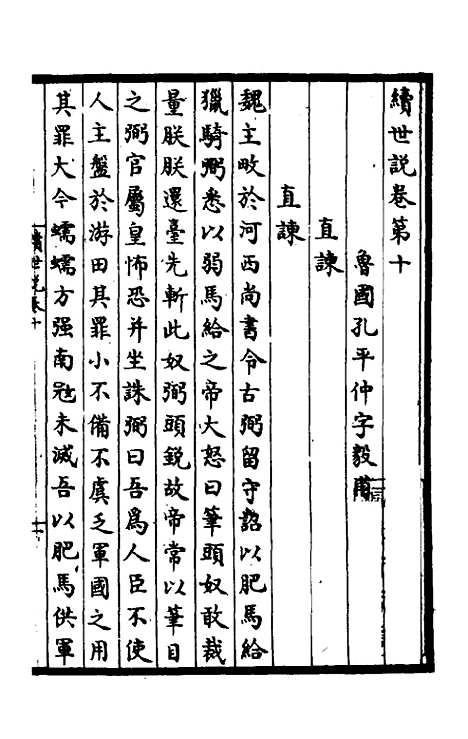 續世說卷第十
魯國孔平仲字毅甫
直諫
直諫
魏主畋於河西尚書令古弼留守詔以肥馬給
獵騎弼悉以弱馬給之帝大怒曰筆頭奴敢裁
量朕朕還臺先斬此奴弼頭銳故帝常以筆目
之弼官屬皇怖恐并坐誅弼曰吾爲人臣不使
人主盤於游田其罪小不備不虞乏軍國之用
其罪大今蠕蠕方强南冦未滅吾以肥馬供軍
續世說卷十